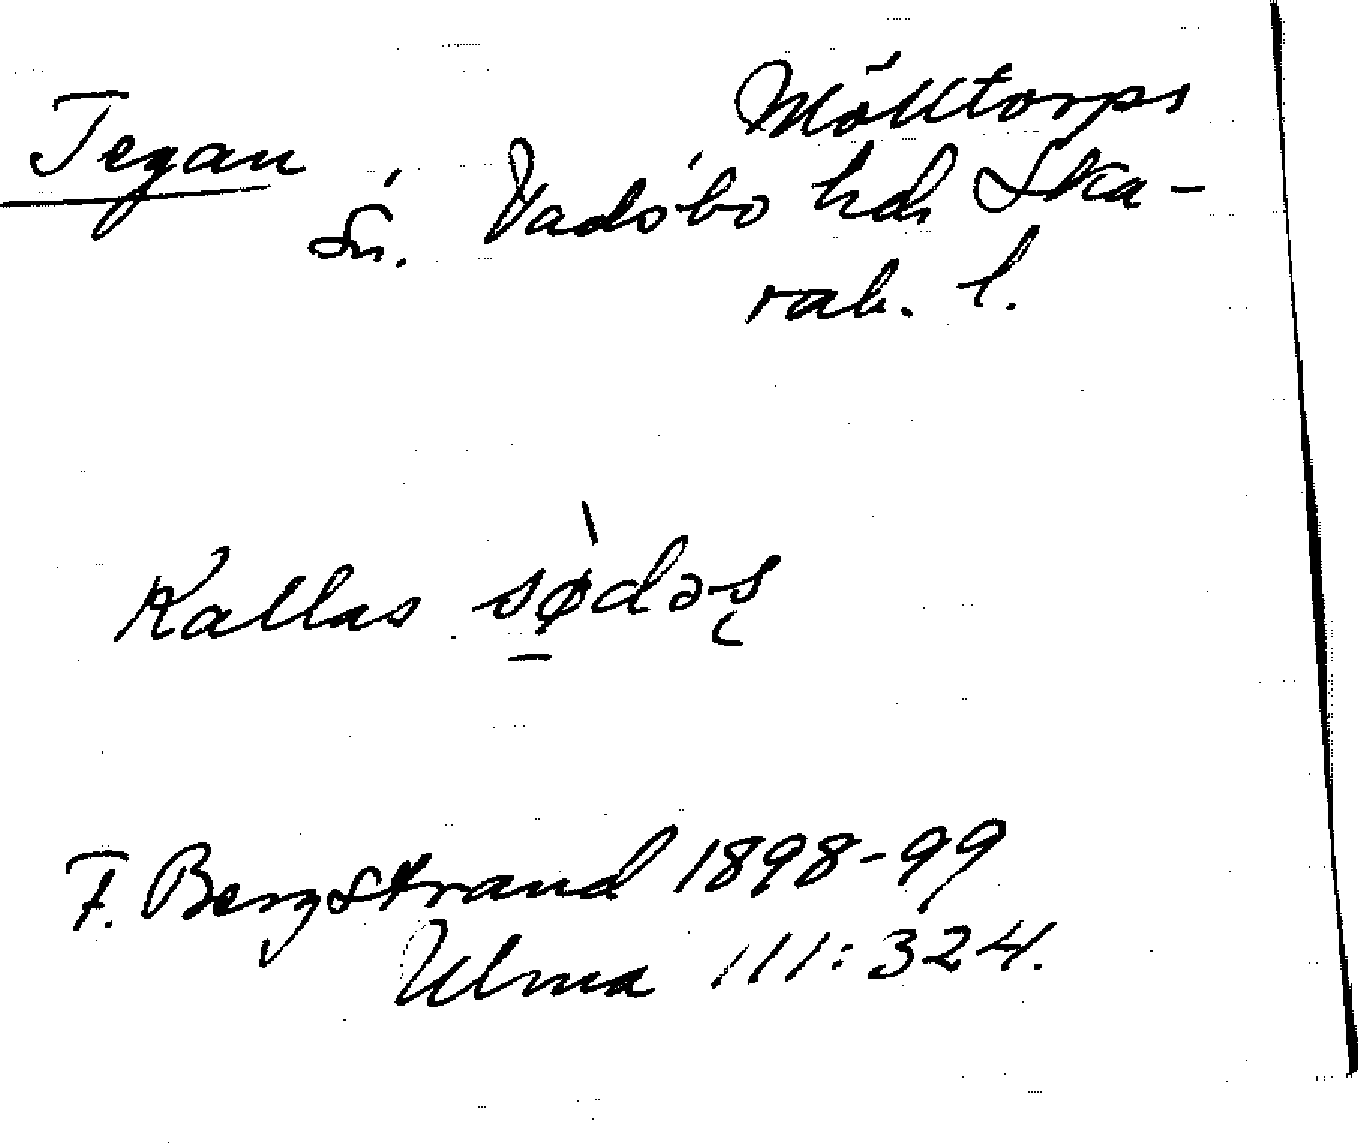 Tegan
Mölltorps
sn. Vadsbo hd, Ska-
rab. l.
Kallas
F. Bergstrand 1898-99
Ulma 111:324.